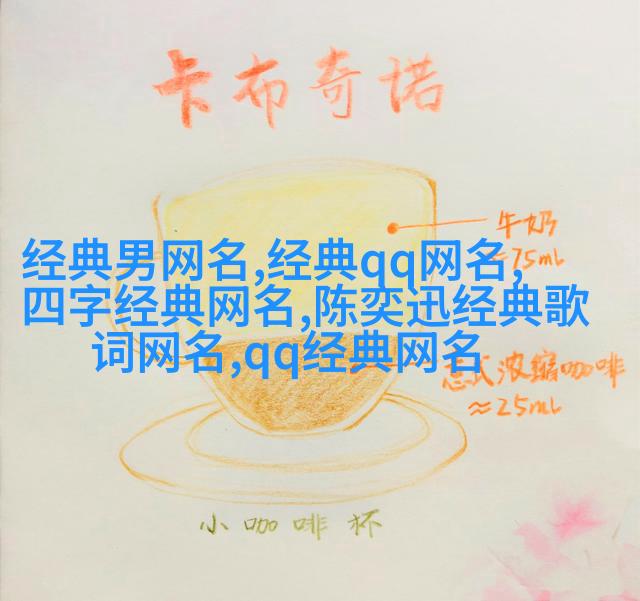 卡布奇诺
牛奶
≈75mL
经典男网名,经典qq网名,
四字经典网名,陈奕迅经典歌
词网名,qq经典网名
意式浓缩咖啡
≈25mL
小咖啡杯